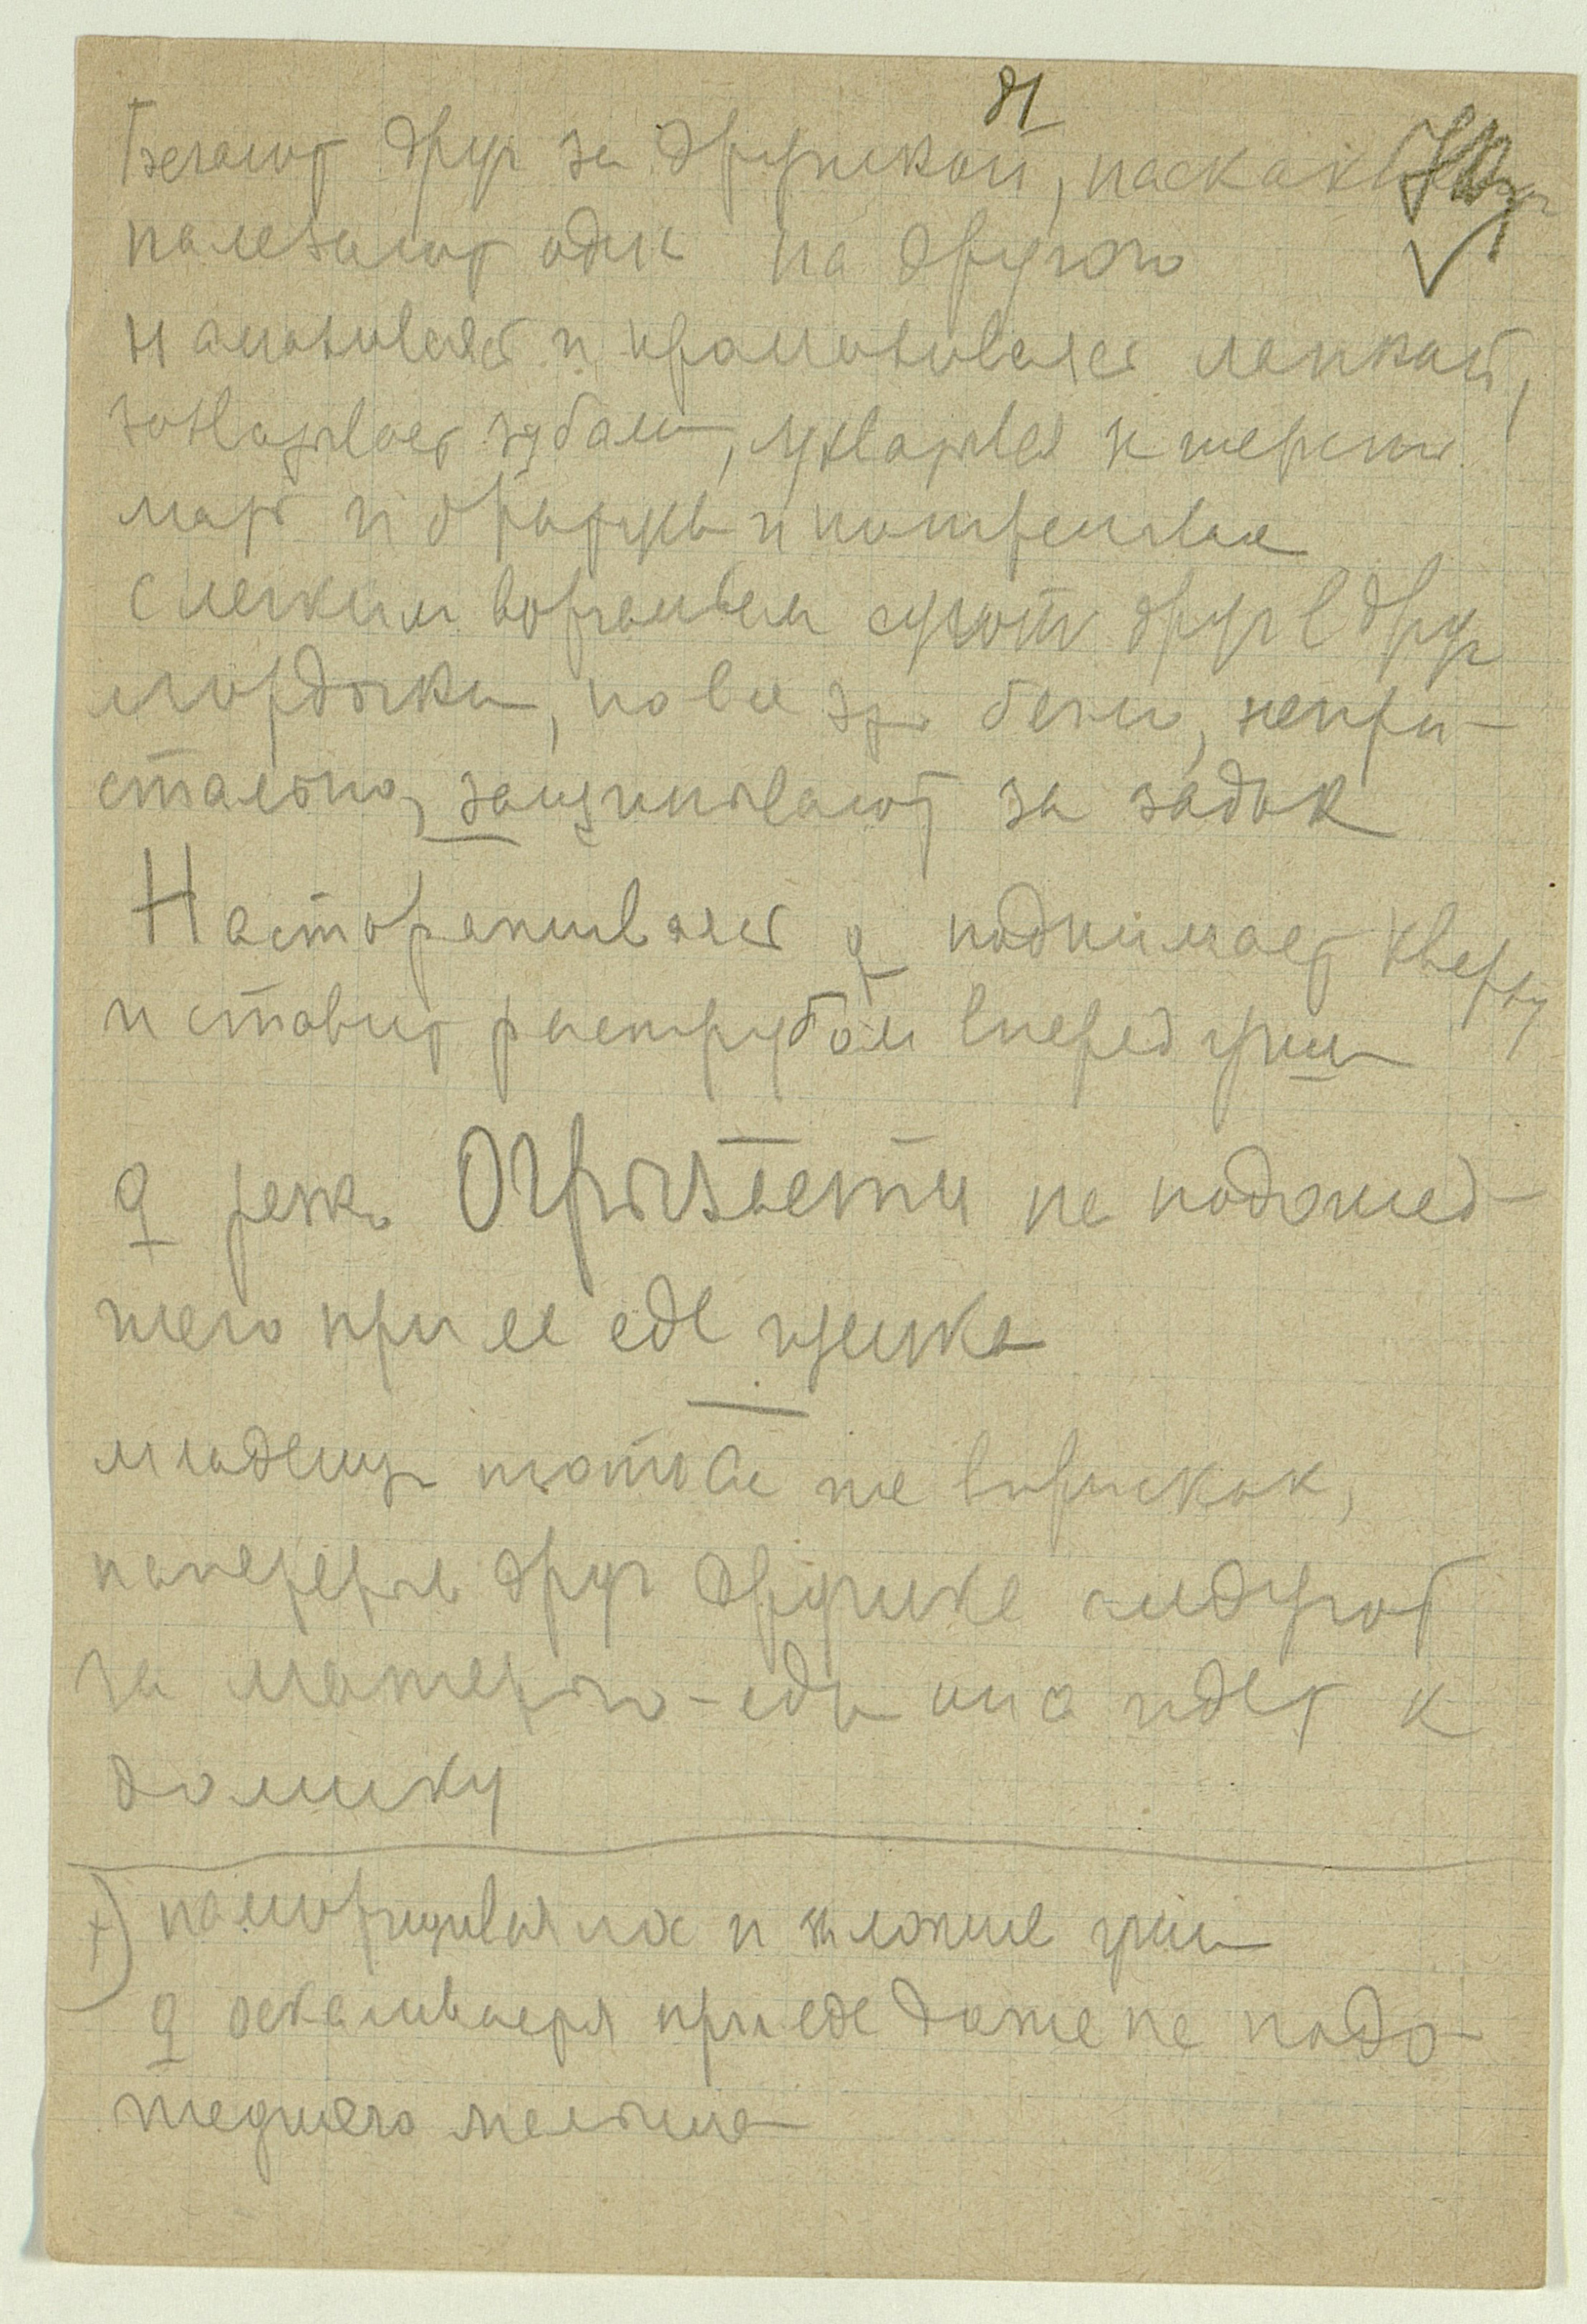 Бегают друг за дружкой, наскакивают
налезают один на другого
Намахивается и промахивается лапкой,
захватывает зубами, ухватывая к шерсти
мать и друг и потрепывая
С легким ворчаньем суют друг в друг
мордочки, но все это беззл, непри-
стально, защипывают за задок
Настораживается ♀ поднимает кверху
и ставит раструбом вперед уши
♀ резко огрызается на подошед-
шего при ее еде щенка
младенцы шатове не ворчском,
наперерыв друг дружке следуют
за матерью - едва она идет к
домику
+) наморщивая нос и наложив уши
♀ оскаливается при еде даже на подо-
шедшего малыша